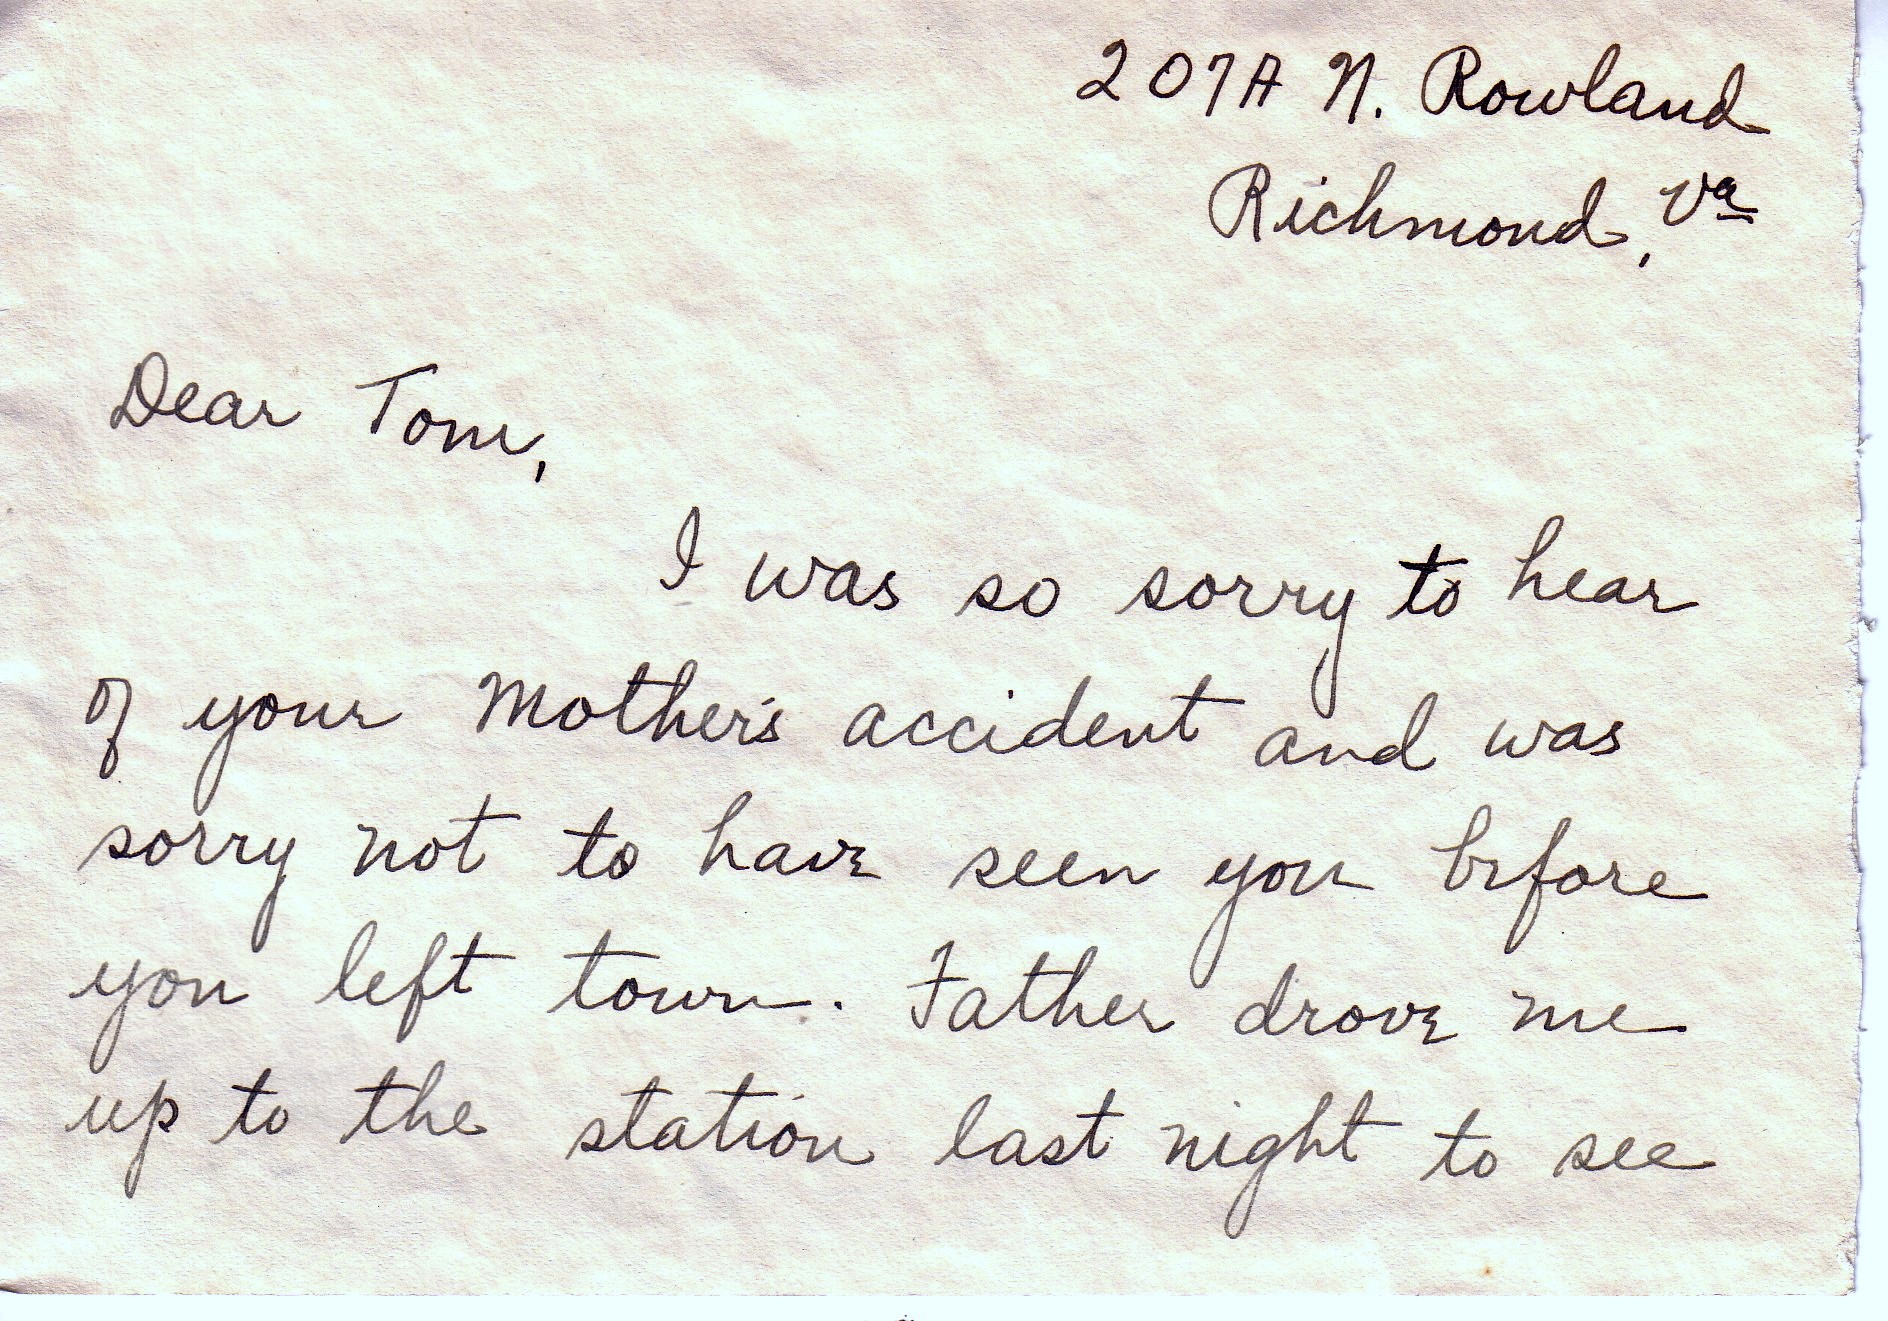 207A N. Rowland
Richmond, Va
Dear Tom,
I was so sorry to hear
of your Mother's accident and was
sorry not to have seen you before
you left town. Father drove me
up to the station last night to see